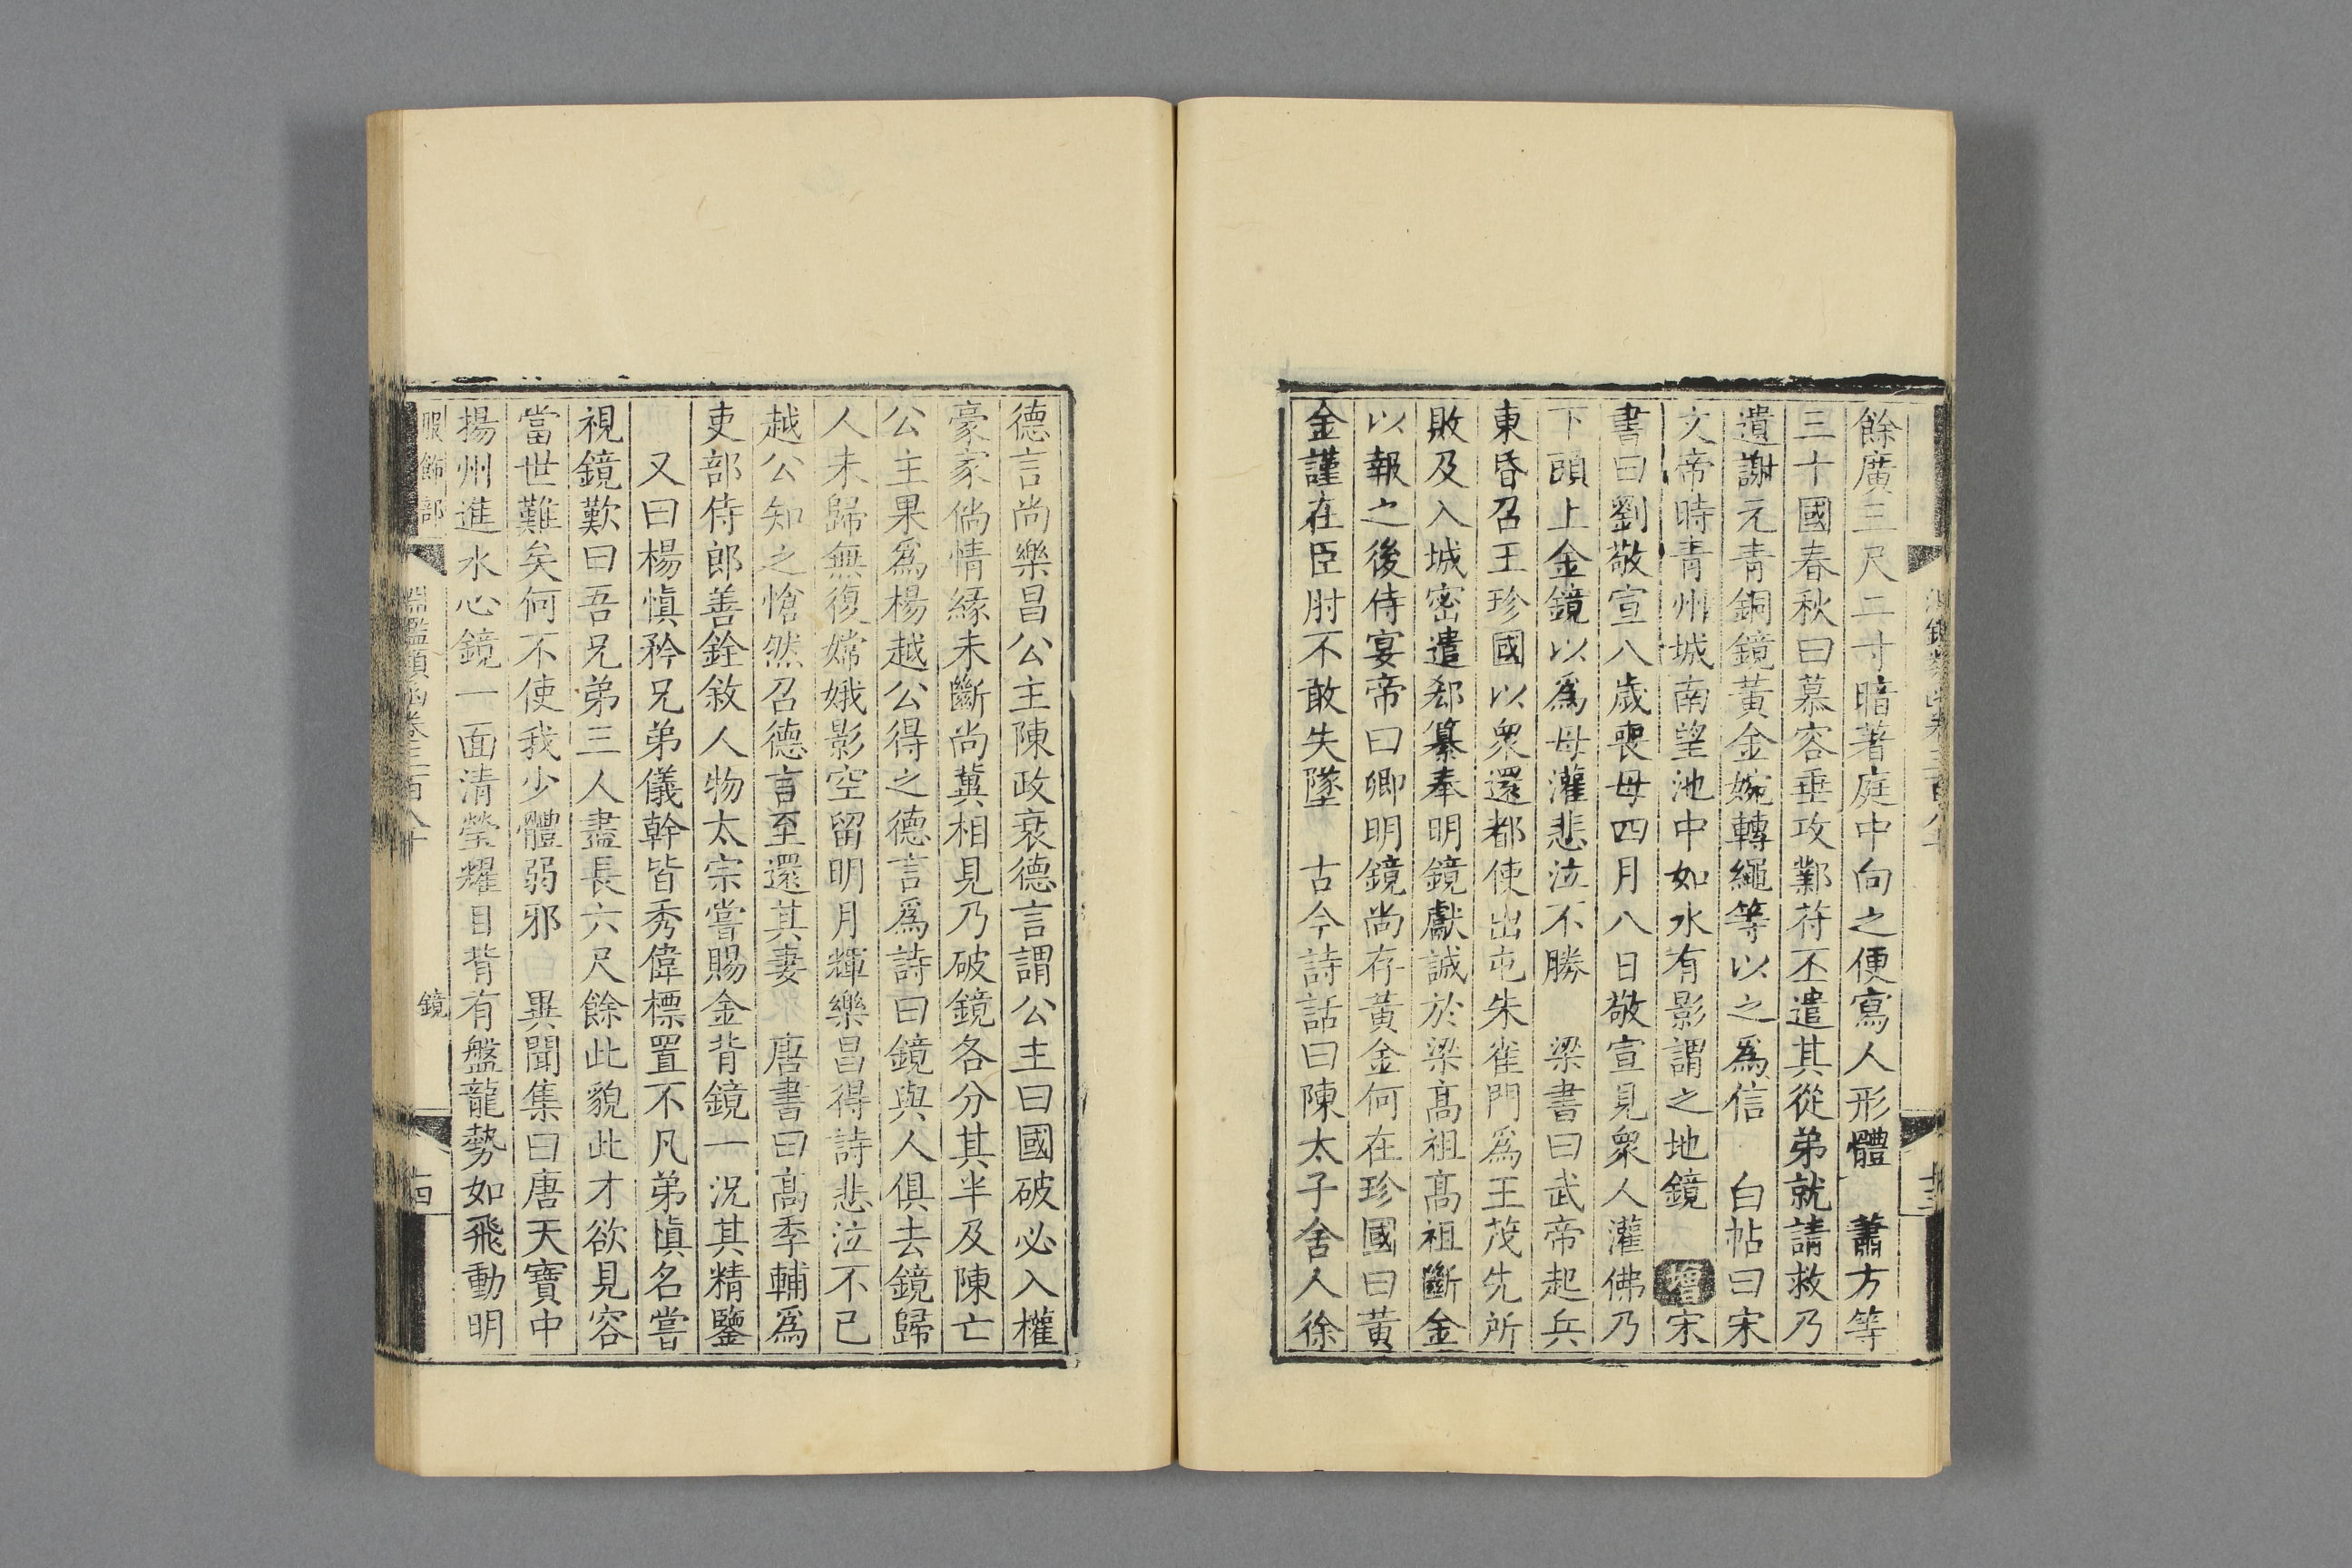 餘廣三尺二寸暗著庭中向之便寫人形體　蕭方等
三十國春秋曰慕容垂攻鄴苻丕遣其從弟就請救乃
遺謝元青銅鏡黃金婉轉繩等以之爲信　白帖曰宋
文帝時青州城南望池中如水有影謂之地鏡　增宋
書曰劉敬宣八歲喪母四月八日敬宣見衆人灌佛乃
下頭上金鏡以爲母灌悲泣不勝　梁書曰武帝起兵
東昏召王珍國以衆還都使出屯朱雀門爲王茂先所
敗及入城密遣郄纂奉明鏡獻誠於梁高祖高祖斷金
以報之後侍宴帝曰卿明鏡尚存黃金何在珍國曰黃
金謹在臣肘不敢失墜　古今詩話曰陳太子舍人徐
德言尚樂昌公主陳政衰德言謂公主曰國破必入權
豪家倘情緣未斷尚冀相見乃破鏡各分其半及陳亡
公主果爲楊越公得之德言爲詩曰鏡與人俱去鏡歸
人未歸無復嫦娥影空留明月輝樂昌得詩悲泣不已
越公知之愴然召德言至還其妻　唐書曰高季輔爲
吏部侍郎善銓敘人物太宗嘗賜金背鏡一況其精鑒
又曰楊慎矜兄弟儀幹皆秀偉標置不凡弟慎名嘗
視鏡歎曰吾兄弟三人盡長六尺餘此貌此才欲見容
當世難矣何不使我少體弱邪　異聞集曰唐天寶中
揚州進水心鏡一面清瑩耀目背有盤龍勢如飛動明
服飾部　淵鑑類函卷三百八十　鏡　十四